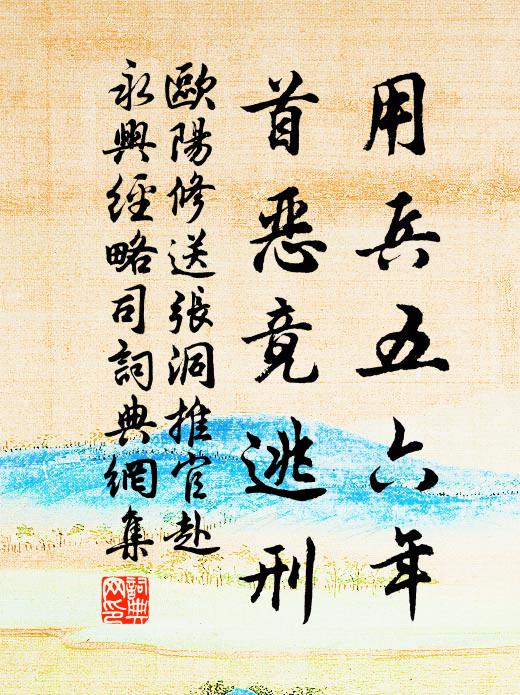 用兵五六年
首惡竟逃刑
歐陽修送張洞推官赴
永興經略司詞典網集
詞典
网印